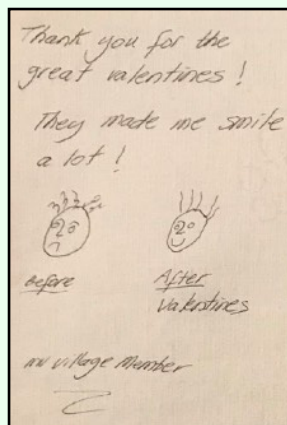 Thank you for the
great valentines!
They made me smile
a lot!
Before
After
valentines
mv village Member